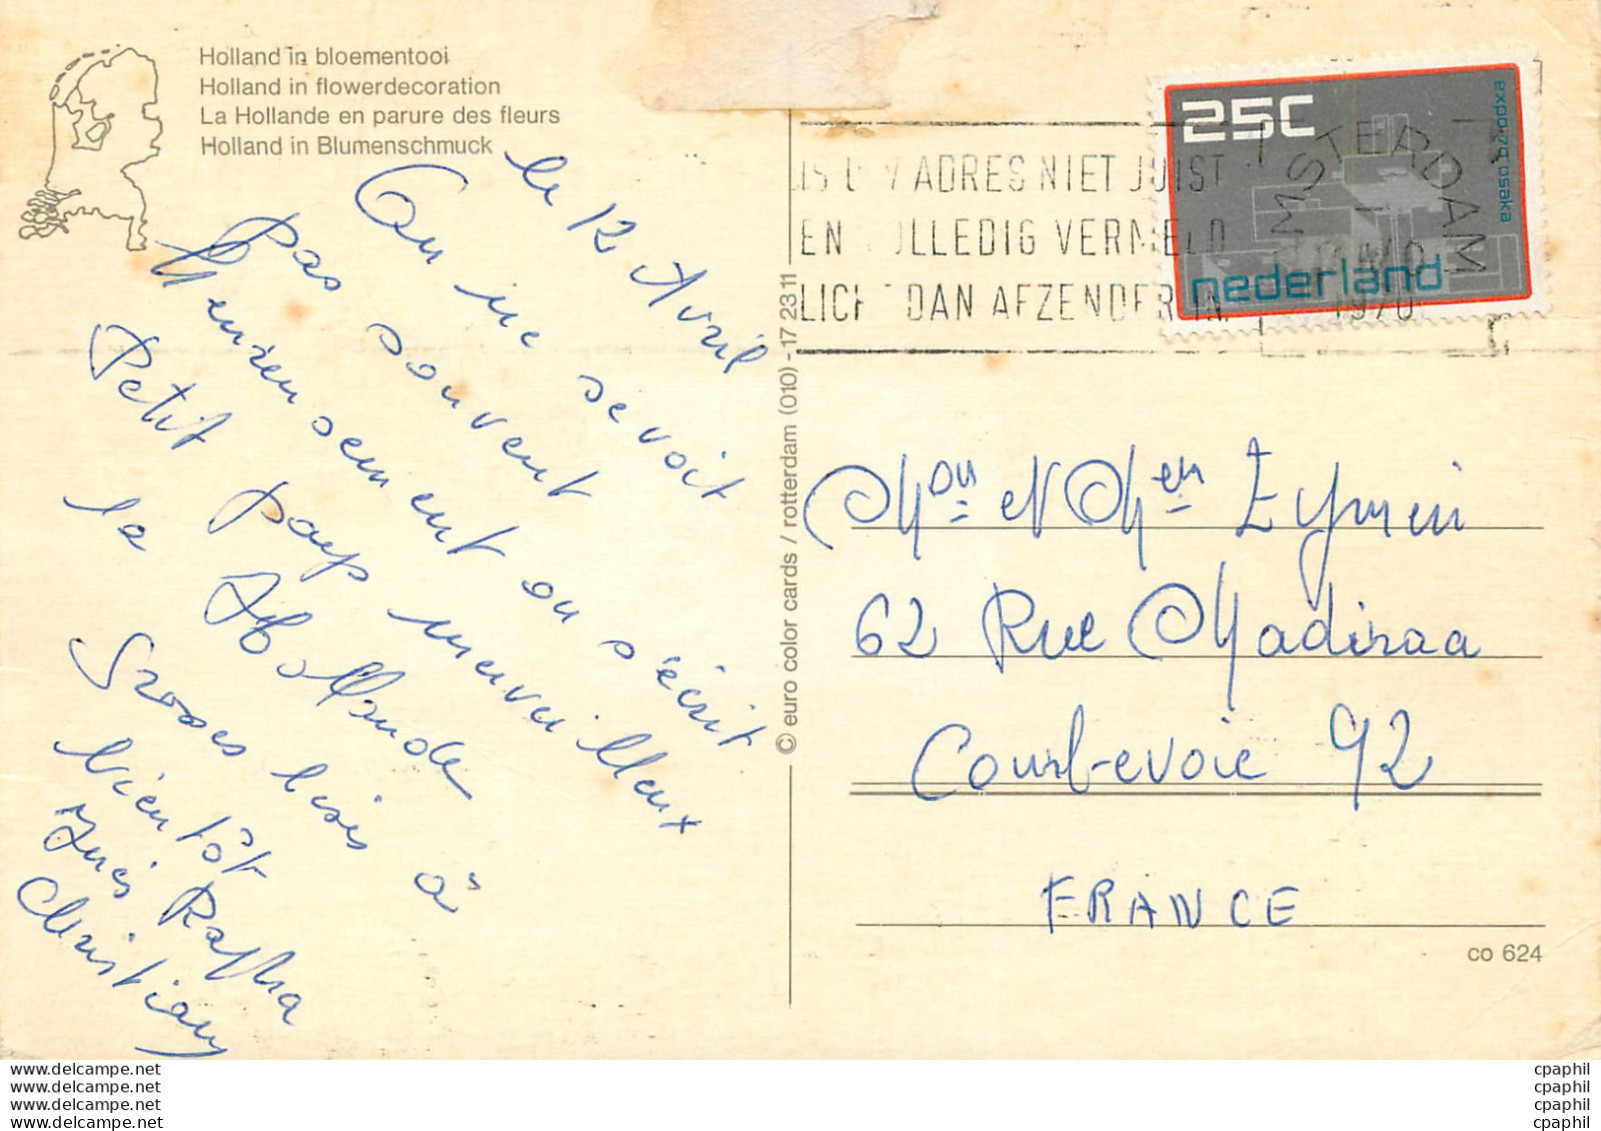 Holland in bloementooi
Holland in flowerdecoration
La Hollande en parure des fleurs
Holland in Blumenschmuck
le 12 Avril
On ne se voit
pas souvent
Heureusement on s'écrit
Petit pays merveilleux
la Hollande
Grosses bises à
bientôt Rapha
Inès
Christiany
© euro color cards / rotterdam (010) - 17 23 11
25c
expo-70 osaka
nederland
AMSTERDAM
1970
ADRES NIET JUIST
EN VOLLEDIG VERMELD
LICHT DAN AFZENDER IN
Mon et Men Eymin
62 Rue Madiraa
Courbevoie 92
FRANCE
co 624
www.delcampe.net
www.delcampe.net
www.delcampe.net
www.delcampe.net
cpaphil
cpaphil
cpaphil
cpaphil